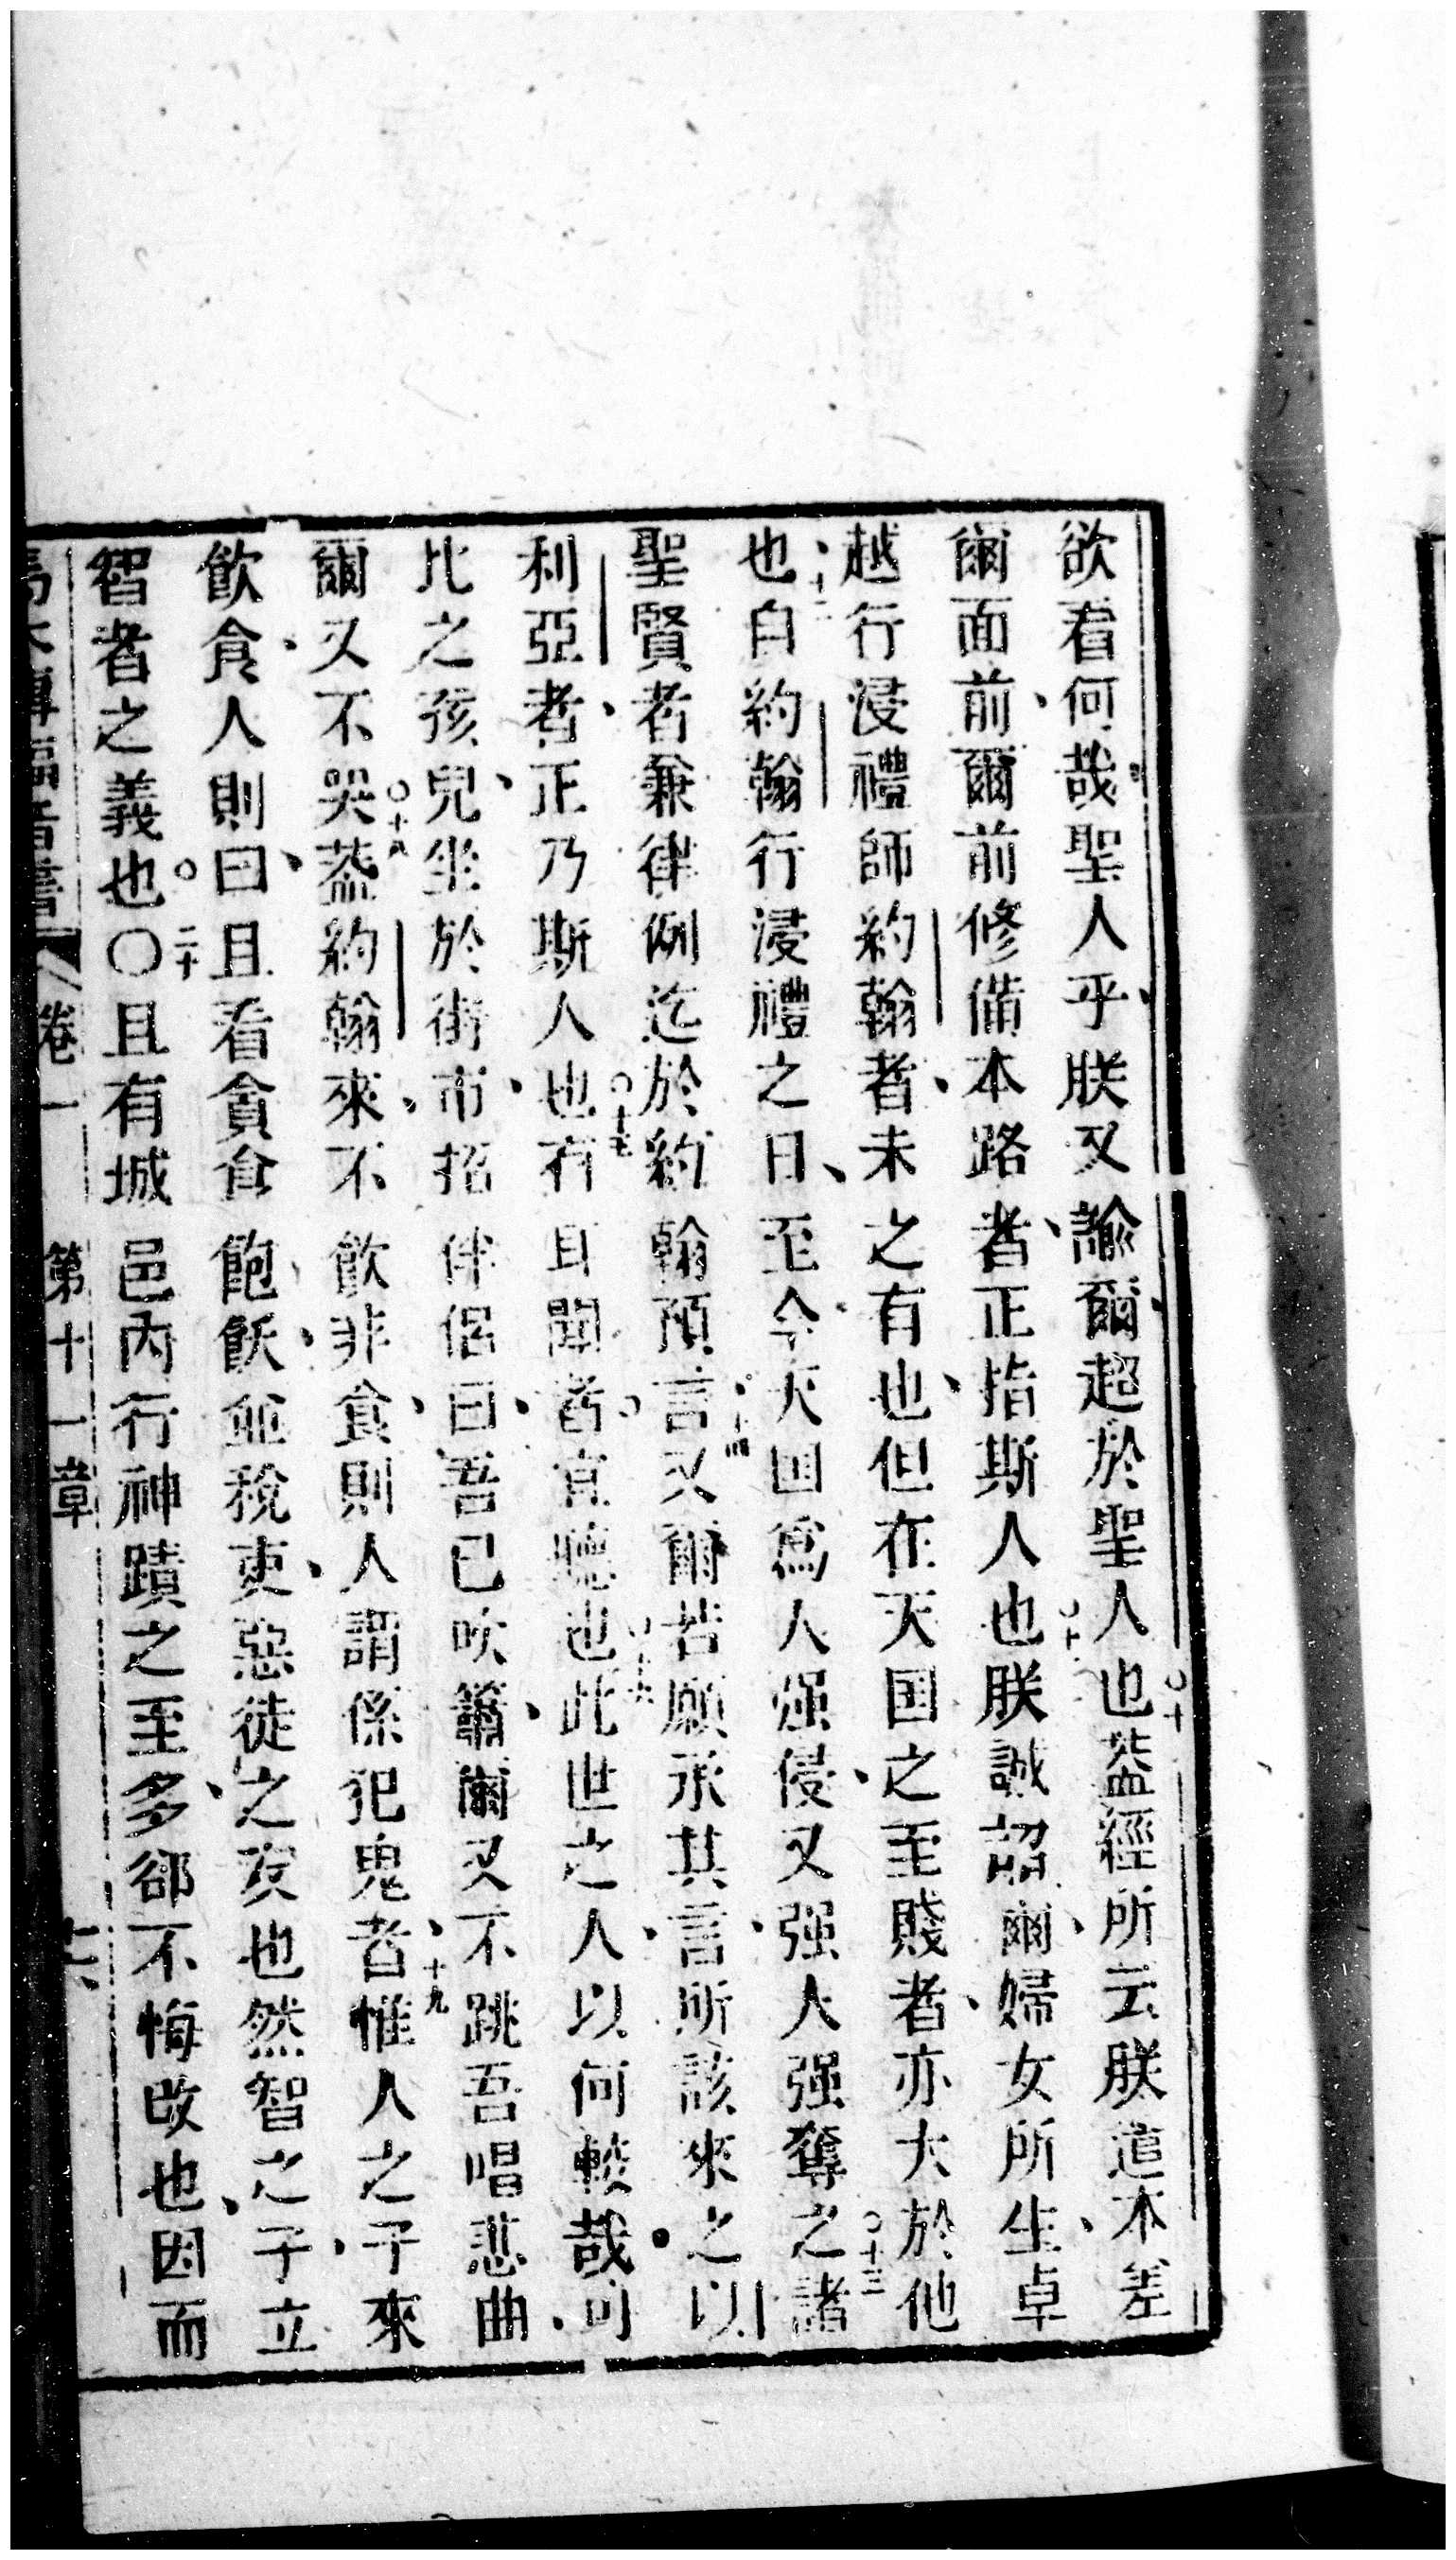 欲看何哉聖人乎、朕又諭爾、超於聖人也○十葢經所云朕遣本差
爾面前、爾前修備本路者、正指斯人也○十一朕誠詔爾、婦女所生、卓
越行浸禮師約翰者、未之有也、但在天国之至賤者、亦大於他
也○十二自約翰行浸禮之日、至今天国為人强侵、又强人强奪之○十三諸
聖賢者兼律例迄於約翰預言○十四又爾若願承其言、所該來之以
利亞者、正乃斯人也○十五有耳聞者、宜聽也○十六此世之人、以何較哉、可
比之孩兒、坐於街市、招伴侣曰、吾已吹簫、爾又不跳、吾唱悲曲、
爾又不哭○十八葢約翰來、不飲非食、則人謂係犯鬼者、十九惟人之子來
飲食、人則曰、且看貪食飽飫、並稅吏、惡徒之友也、然智之子、立
智者之義也。○二十且有城邑內行神蹟之至多、卻不悔改也、因而
卷一 第十一章